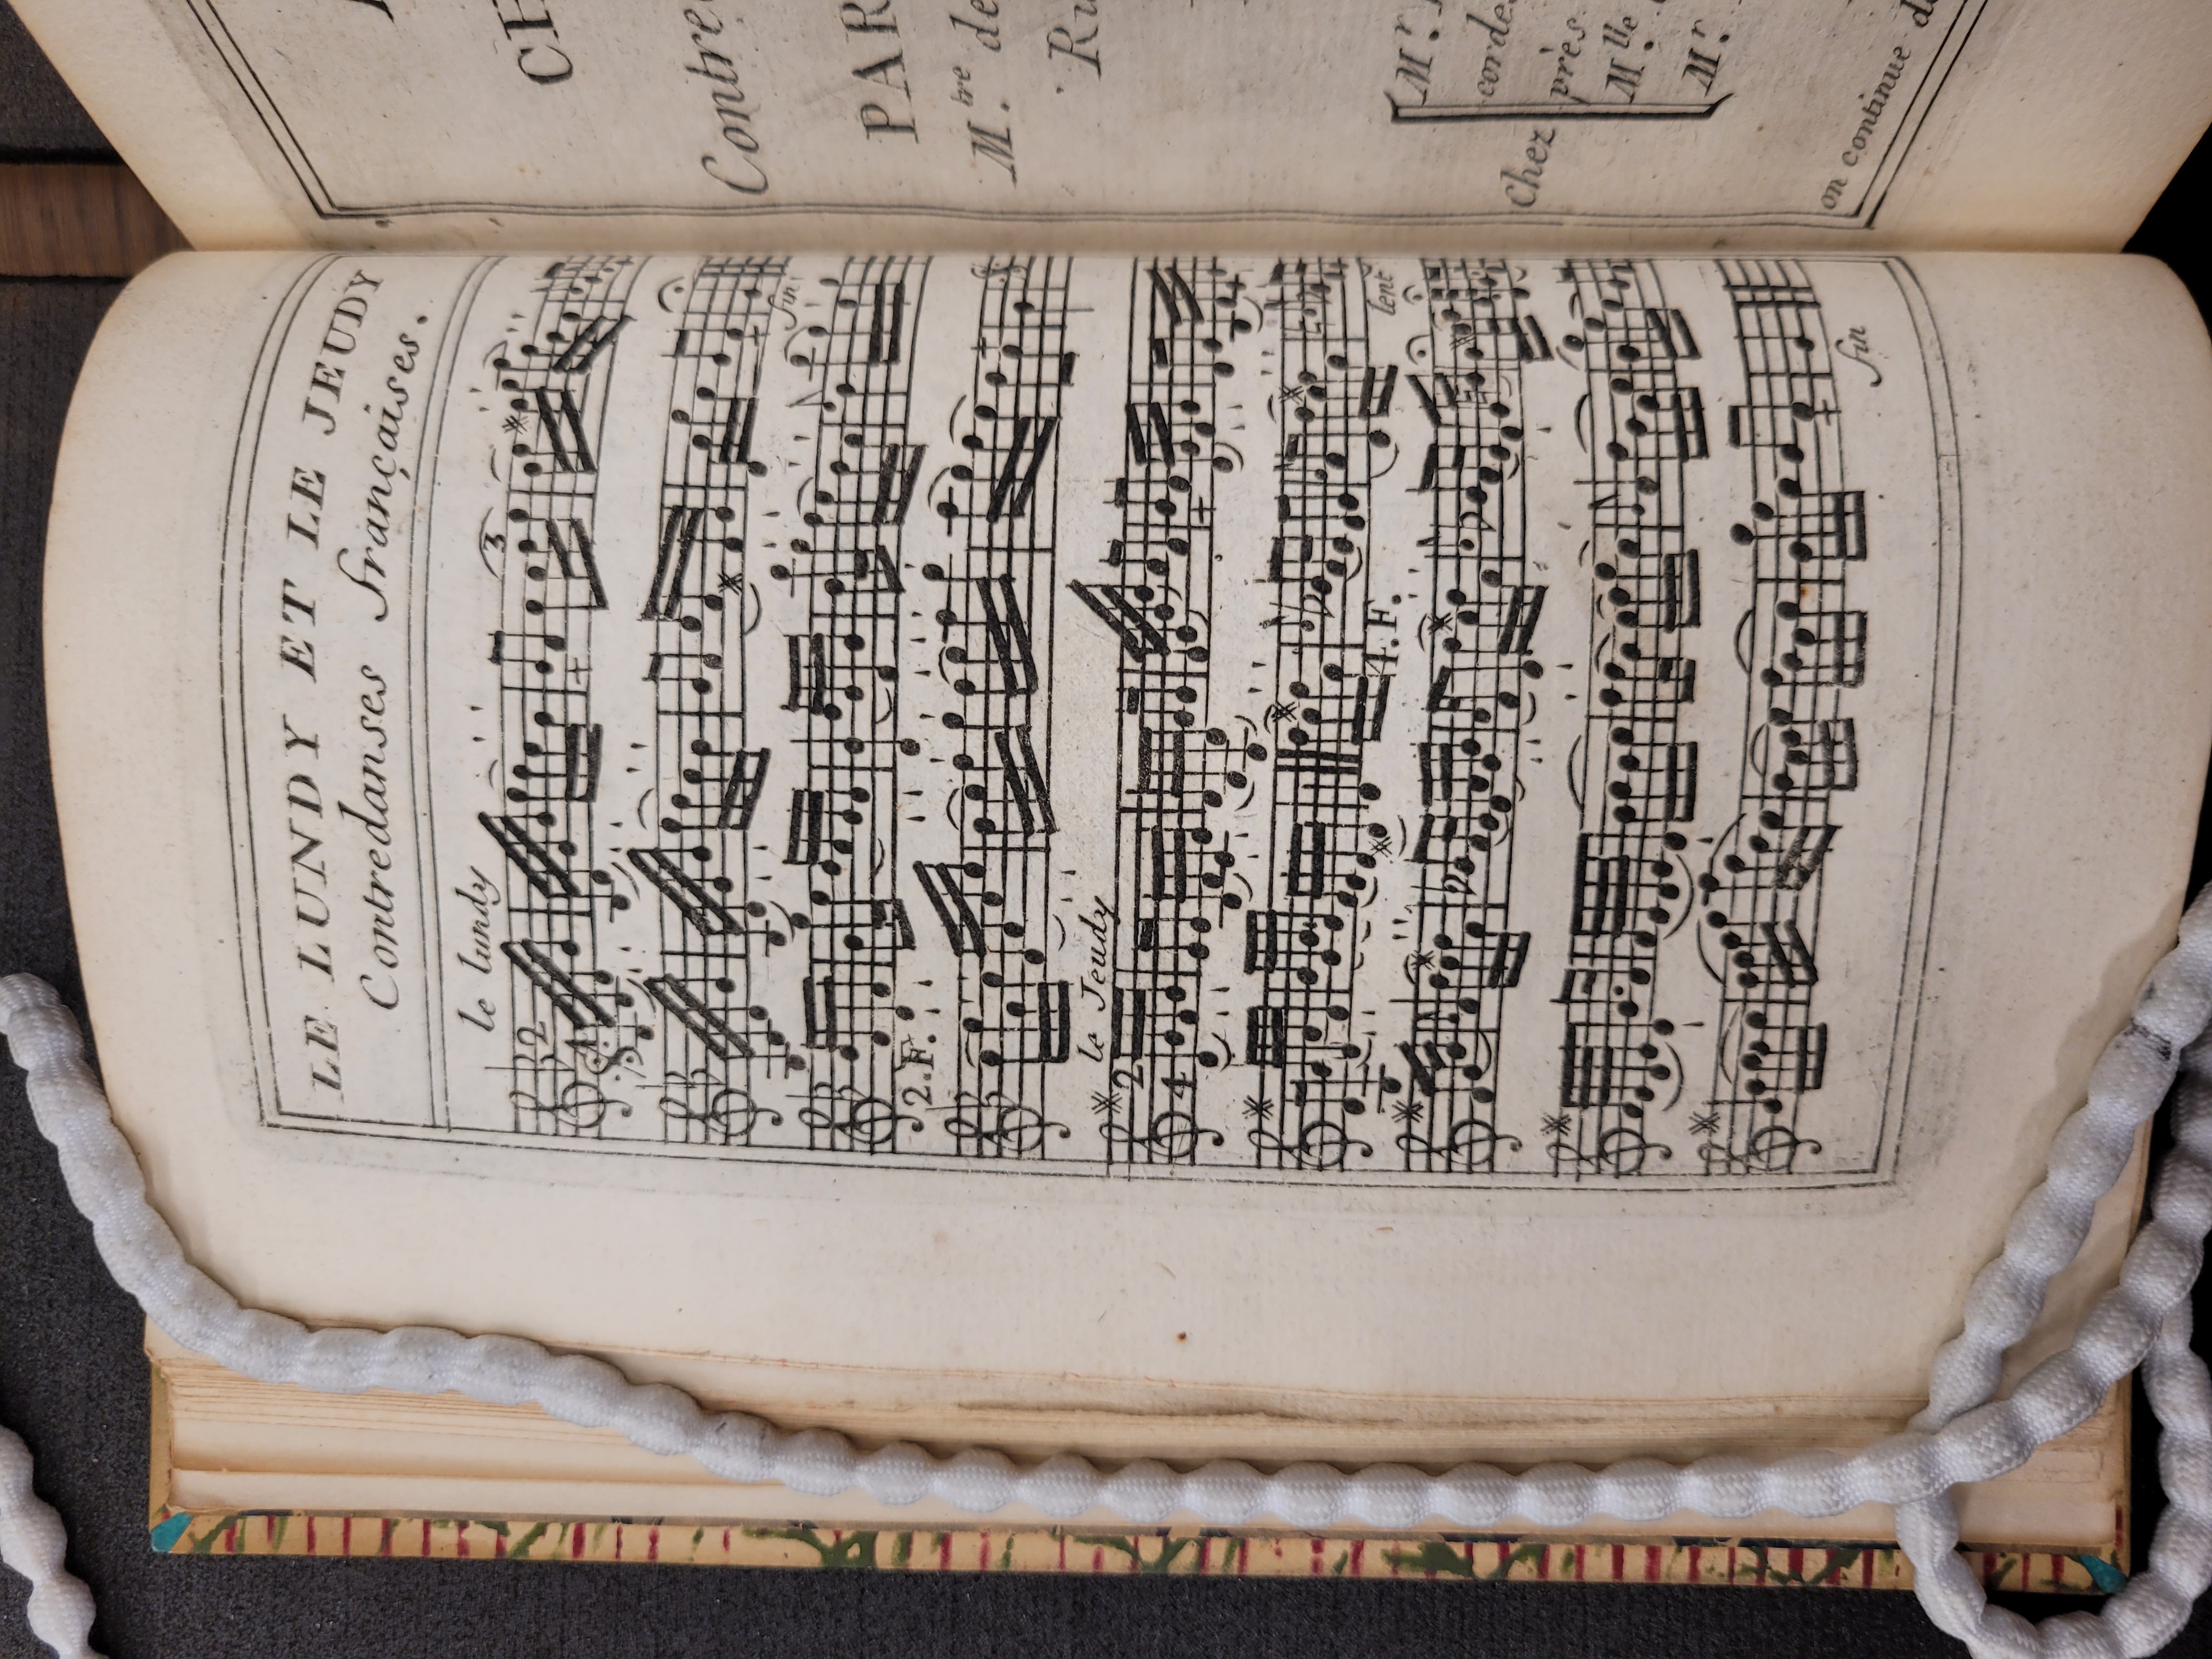 LE LUNDY ET LE JEUDY
Contredanses françaises.
le lundy
2
4
3
fin
2.F.
le Jeudy
2
4
4.F.
lent
fin
CH
Contre
PAR
M.tre de
Ru
Chez
M.r
corde
près
M.lle
M.r
on continue d